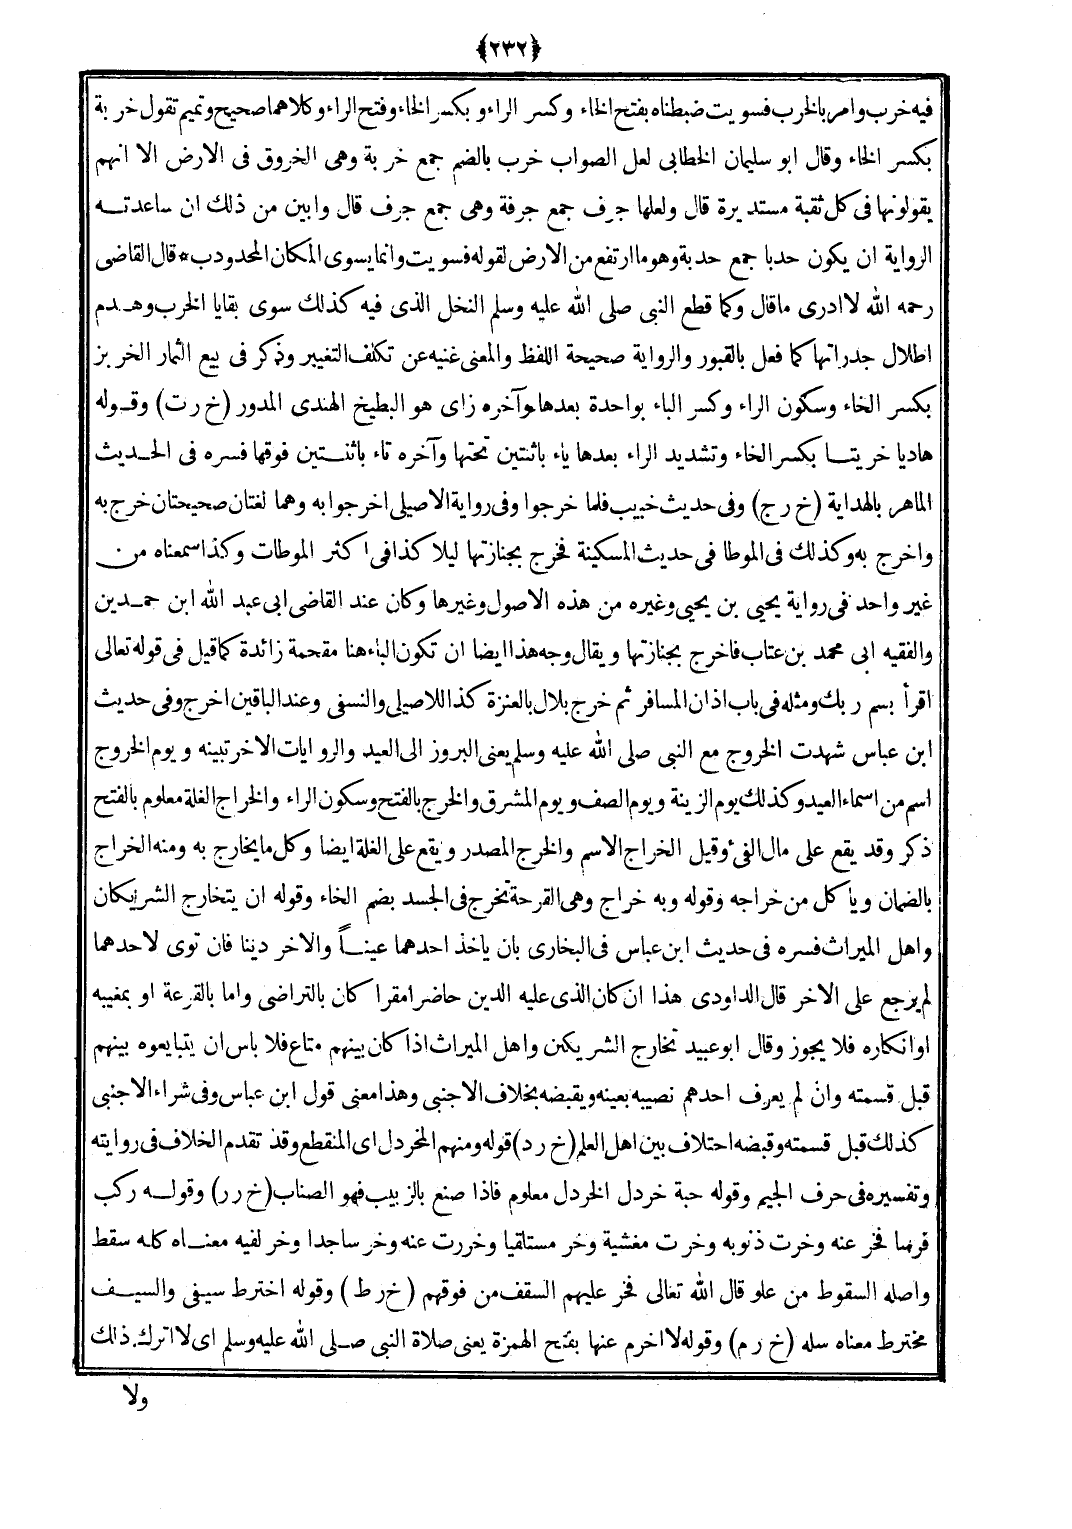 ﴿٢٣٢﴾
فيه خرب وامر بالخرب فسويت ضبطناه بفتح الخاء وكسر الراء و بكسر الخاء وفتح الراء وكلاهما صحيح وتميم تقول خربة
بكسر الخاء وقال ابو سليمان الخطابى لعل الصواب خرب بالضم جمع خربة وهى الخروق فى الارض الا انهم
يقولونها فى كل ثقبة مستديرة قال ولعلها جرف جمع جرفة وهى جمع جرف قال وابين من ذلك ان ساعدته
الرواية ان يكون حدبا جمع حدبة وهو ما ارتفع من الارض لقوله فسويت وانما يسوى المكان المحدودب * قال القاضى
رحمه الله لا ادرى ماقال وكما قطع النبى صلى الله عليه وسلم النخل الذى فيه كذلك سوى بقايا الخرب وهدم
اطلال جدراتها كما فعل بالقبور والرواية صحيحة اللفظ والمعنى غنيه عن تكلف التغيير وذكر فى بيع الثمار الخربز
بكسر الخاء وسكون الراء وكسر الباء بواحدة بعدها وآخره زاى هو البطيخ الهندى المدور (خ ر ت) وقوله
هاديا خريتا بكسر الخاء وتشديد الراء بعدها ياء باثنتين تحتها وآخره تاء باثنتين فوقها فسره فى الحديث
الماهر بالهداية (خ ر ج) وفى حديث خبيب فلما خرجوا وفى رواية الاصيلى اخرجوا به وهما لغتان صحيحتان خرج به
واخرج به وكذلك فى الموطا فى حديث المسكينة فخرج بجنازتها ليلا كذا فى اكثر الموطات وكذا سمعناه من
غير واحد فى رواية يحيى بن يحيى وغيره من هذه الاصول وغيرها وكان عند القاضى ابى عبد الله ابن حمدين
والفقيه ابى محمد بن عتاب فاخرج بجنازتها و يقال وجه هذا ايضا ان تكون الباء هنا مقحمة زائدة كما قيل فى قوله تعالى
اقرأ بسم ربك ومثله فى باب اذان المسافر ثم خرج بلال بالعنزة كذا للاصيلى والنسفى وعند الباقين اخرج وفى حديث
ابن عباس شهدت الخروج مع النبى صلى الله عليه وسلم يعنى البروز الى العيد والروايات الاخر تبينه و يوم الخروج
اسم من اسماء العيد وكذلك يوم الزينة و يوم الصف و يوم المشرق والخرج بالفتح وسكون الراء والخراج الغلة معلوم بالفتح
ذكر وقد يقع على مال الفئ وقيل الخراج الاسم والخرج المصدر و يقع على الغلة ايضا وكل مايخارج به ومنه الخراج
بالضمان و ياكل من خراجه وقوله وبه خراج وهى القرحة تخرج فى الجسد بضم الخاء وقوله ان يتخارج الشريكان
واهل الميراث فسره فى حديث ابن عباس فى البخارى بان ياخذ احدهما عيناً والاخر دينا فان توى لاحدهما
لم يرجع على الاخر قال الداودى هذا ان كان الذى عليه الدين حاضرا مقرا كان بالتراضى واما بالقرعة او بمغيبه
او انكاره فلا يجوز وقال ابو عبيد تخارج الشريكين واهل الميراث اذا كان بينهم متاع فلا باس ان يتبايعوه بينهم
قبل قسمته وان لم يعرف احدهم نصيبه بعينه ويقبضه بخلاف الاجنبى وهذا معنى قول ابن عباس وفى شراء الاجنبى
كذلك قبل قسمته وقبضه اختلاف بين اهل العلم (خ ر د) قوله ومنهم المخردل اى المنقطع وقد تقدم الخلاف فى روايته
وتفسيره فى حرف الجيم وقوله حبة خردل الخردل معلوم فاذا صنع بالزبيب فهو الصناب (خ ر ر) وقوله ركب
فرسا فخر عنه وخرت ذنوبه وخرت مغشية وخر مستلقيا وخررت عنه وخر ساجدا وخر لفيه معناه كله سقط
واصله السقوط من علو قال الله تعالى فخر عليهم السقف من فوقهم (خ ر ط) وقوله اخترط سيفى والسيف
مخترط معناه سله (خ ر م) وقوله لا اخرم عنها بفتح الهمزة يعنى صلاة النبى صلى الله عليه وسلم اى لا اترك ذلك
ولا